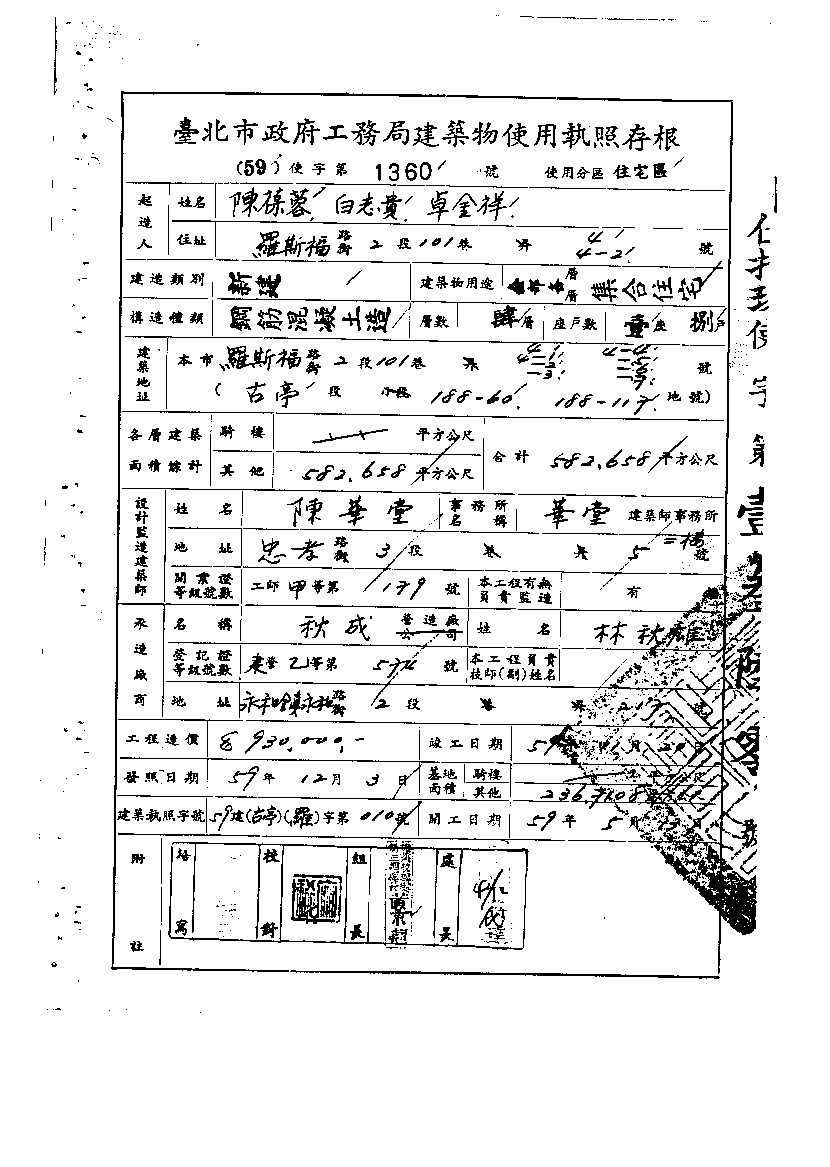 臺北市政府工務局建築物使用執照存根
(59)使字第 1360 號 使用分區 住宅區
起造人 姓名 陳葆蓉 白志貴 卓金祥
住址 羅斯福路 2段101巷 弄 4 4-2 號
建造類別 新建 建築物用途 層 層 集合住宅
構造種類 鋼筋混凝土造 層數 肆層 座戶數 壹座 捌戶
建築地址 本市 羅斯福路 2段101巷 弄 4 4-1 4-2 4-3 4-4 4-5 號
(古亭 段 小段 188-60 188-117 地號)
各層建築面積總計 騎樓 平方公尺
其他 582.658 平方公尺
合計 582.658 平方公尺
設計監造建築師 姓名 陳華堂 事務所名稱 華堂 建築師事務所
地址 忠孝路 3段 巷 弄 5 號 二樓
開業證等級號數 工師甲等第 179 號 本工程有無負責監造 有
承造廠商 名稱 秋成 營造廠公司 姓名 林秋雄
登記證等級號數 營乙等第 574 號 本工程負責技師(副)姓名
地址 永和鎮永和路 2段 巷 弄 號
工程造價 930,000.- 竣工日期 59年 月 日
發照日期 59年 12月 3日 基地面積 騎樓 平方公尺
其他 236
建築執照字號 59建(古亭)(羅)字第010號 開工日期 59年 5月 日
附註 繕寫 校對 組長 處長